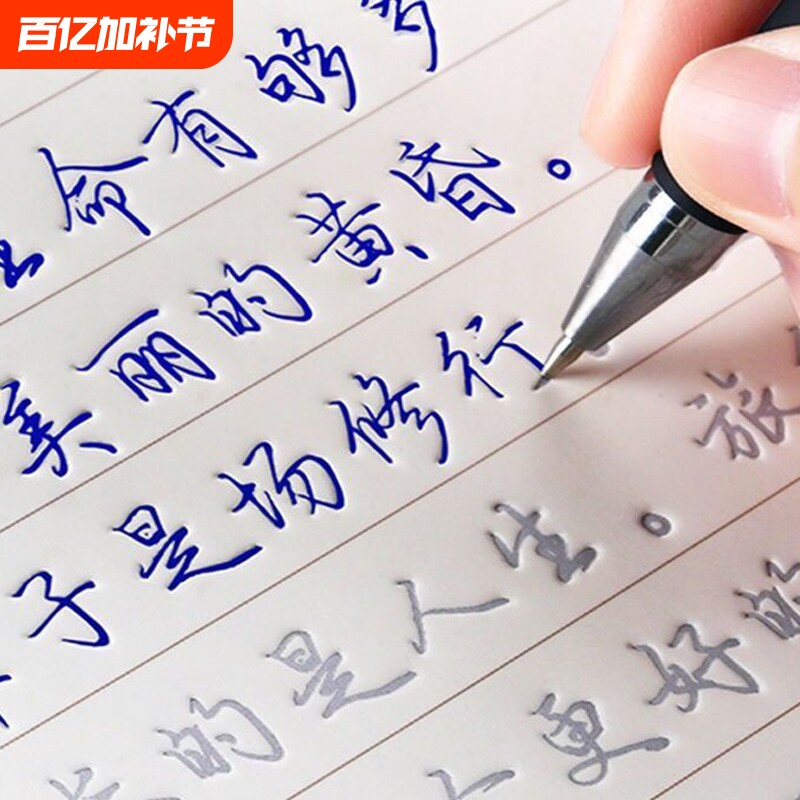 百亿加补节
命有够多
美丽的黄昏。
子是场修行
的是人生。旅
更好的